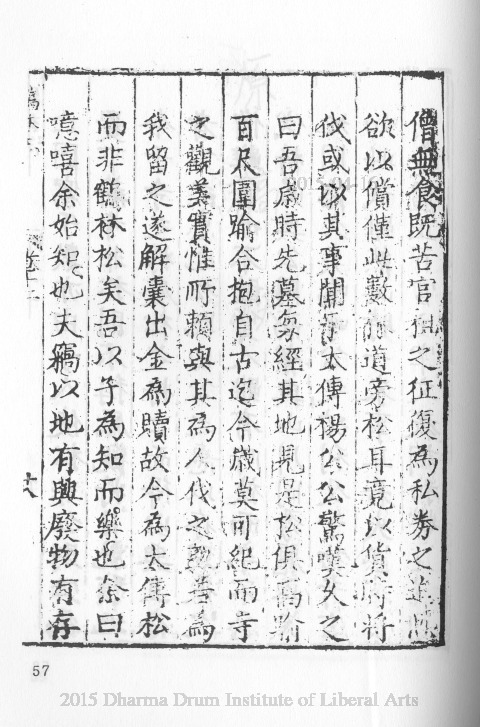 僧無食既苦官租之征復為私券之迫
欲以償僅此數 道旁松耳竟以貨時將
伐或以其事聞于太傅楊公公驚嘆久之
曰吾歲時先墓每經其地見是松俱高踰
百尺圍踰合抱自古迄今歲莫可紀而寺
之觀美實惟所賴與其為人伐之孰若為
我留之遂解囊出金為贖故今為太傅松
而非鶴林松矣吾以子為知而樂也余曰
噫嘻余始知也夫竊以地有興廢物有存
十八
57
2015 Dharma Drum Institute of Liberal Arts